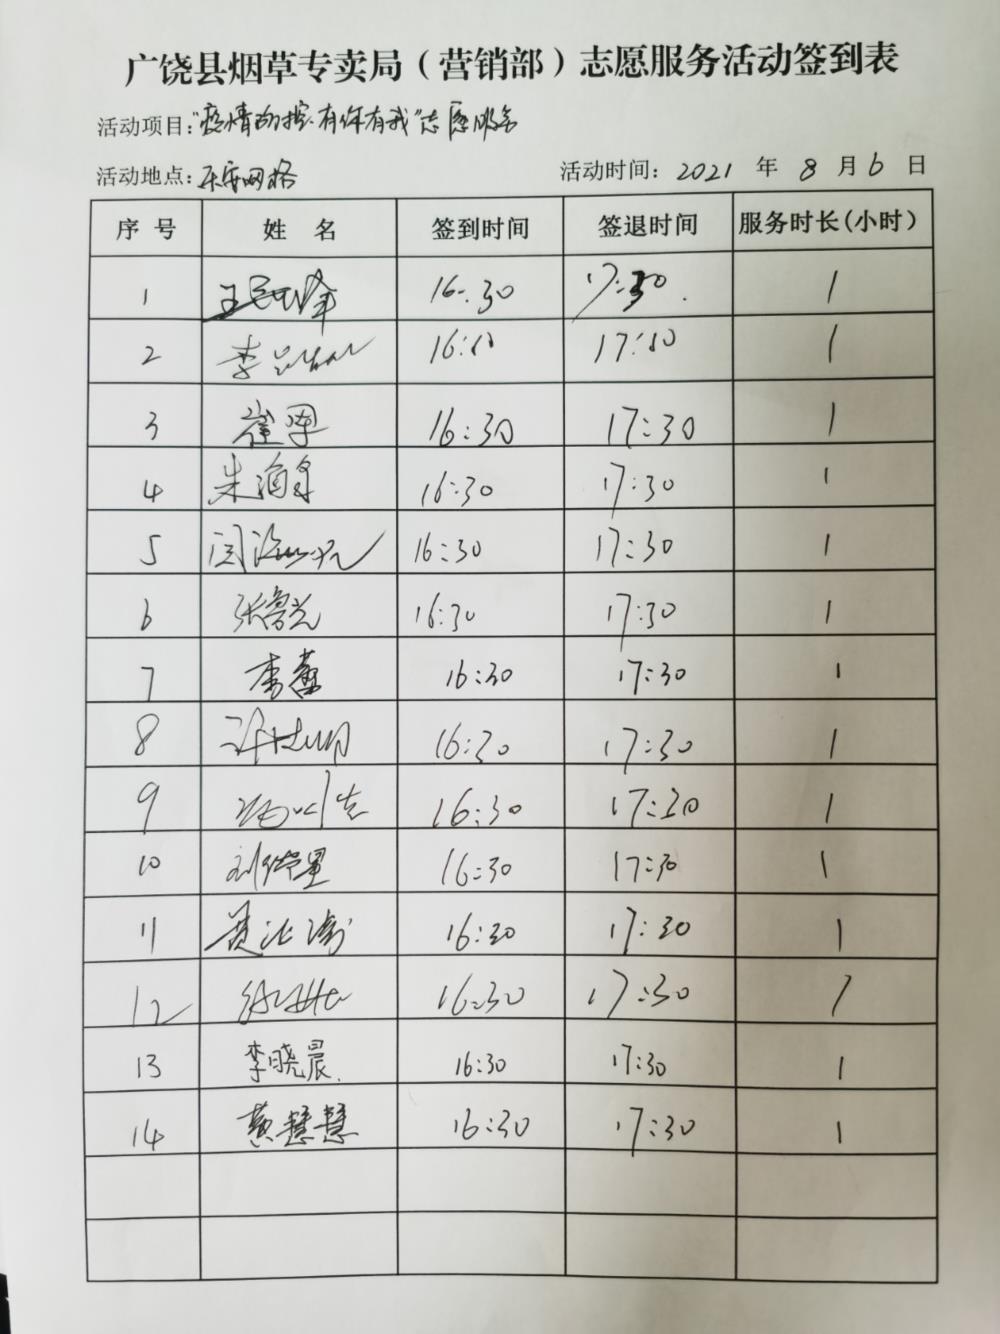 广饶县烟草专卖局(营销部)志愿服务活动签到表
活动项目:"疫情防控·有你有我"志愿服务
活动地点:乐安网格 活动时间: 2021 年 8 月 6 日
序 号 姓 名 签到时间 签退时间 服务时长(小时)
1 16:30 17:30 1
2 李 17:10 1
3 崔 16:30 17:30 1
4 朱 16:30 17:30 1
5 闫 16:30 17:30 1
6 张鲁光 16:30 17:30 1
7 李 16:30 17:30 1
8 16:30 17:30 1
9 16:30 17:30 1
10 刘 星 16:30 17:30 1
11 16:30 17:30 1
12 16:30 17:30 1
13 李晓晨 16:30 17:30 1
14 黄慧慧 16:30 17:30 1